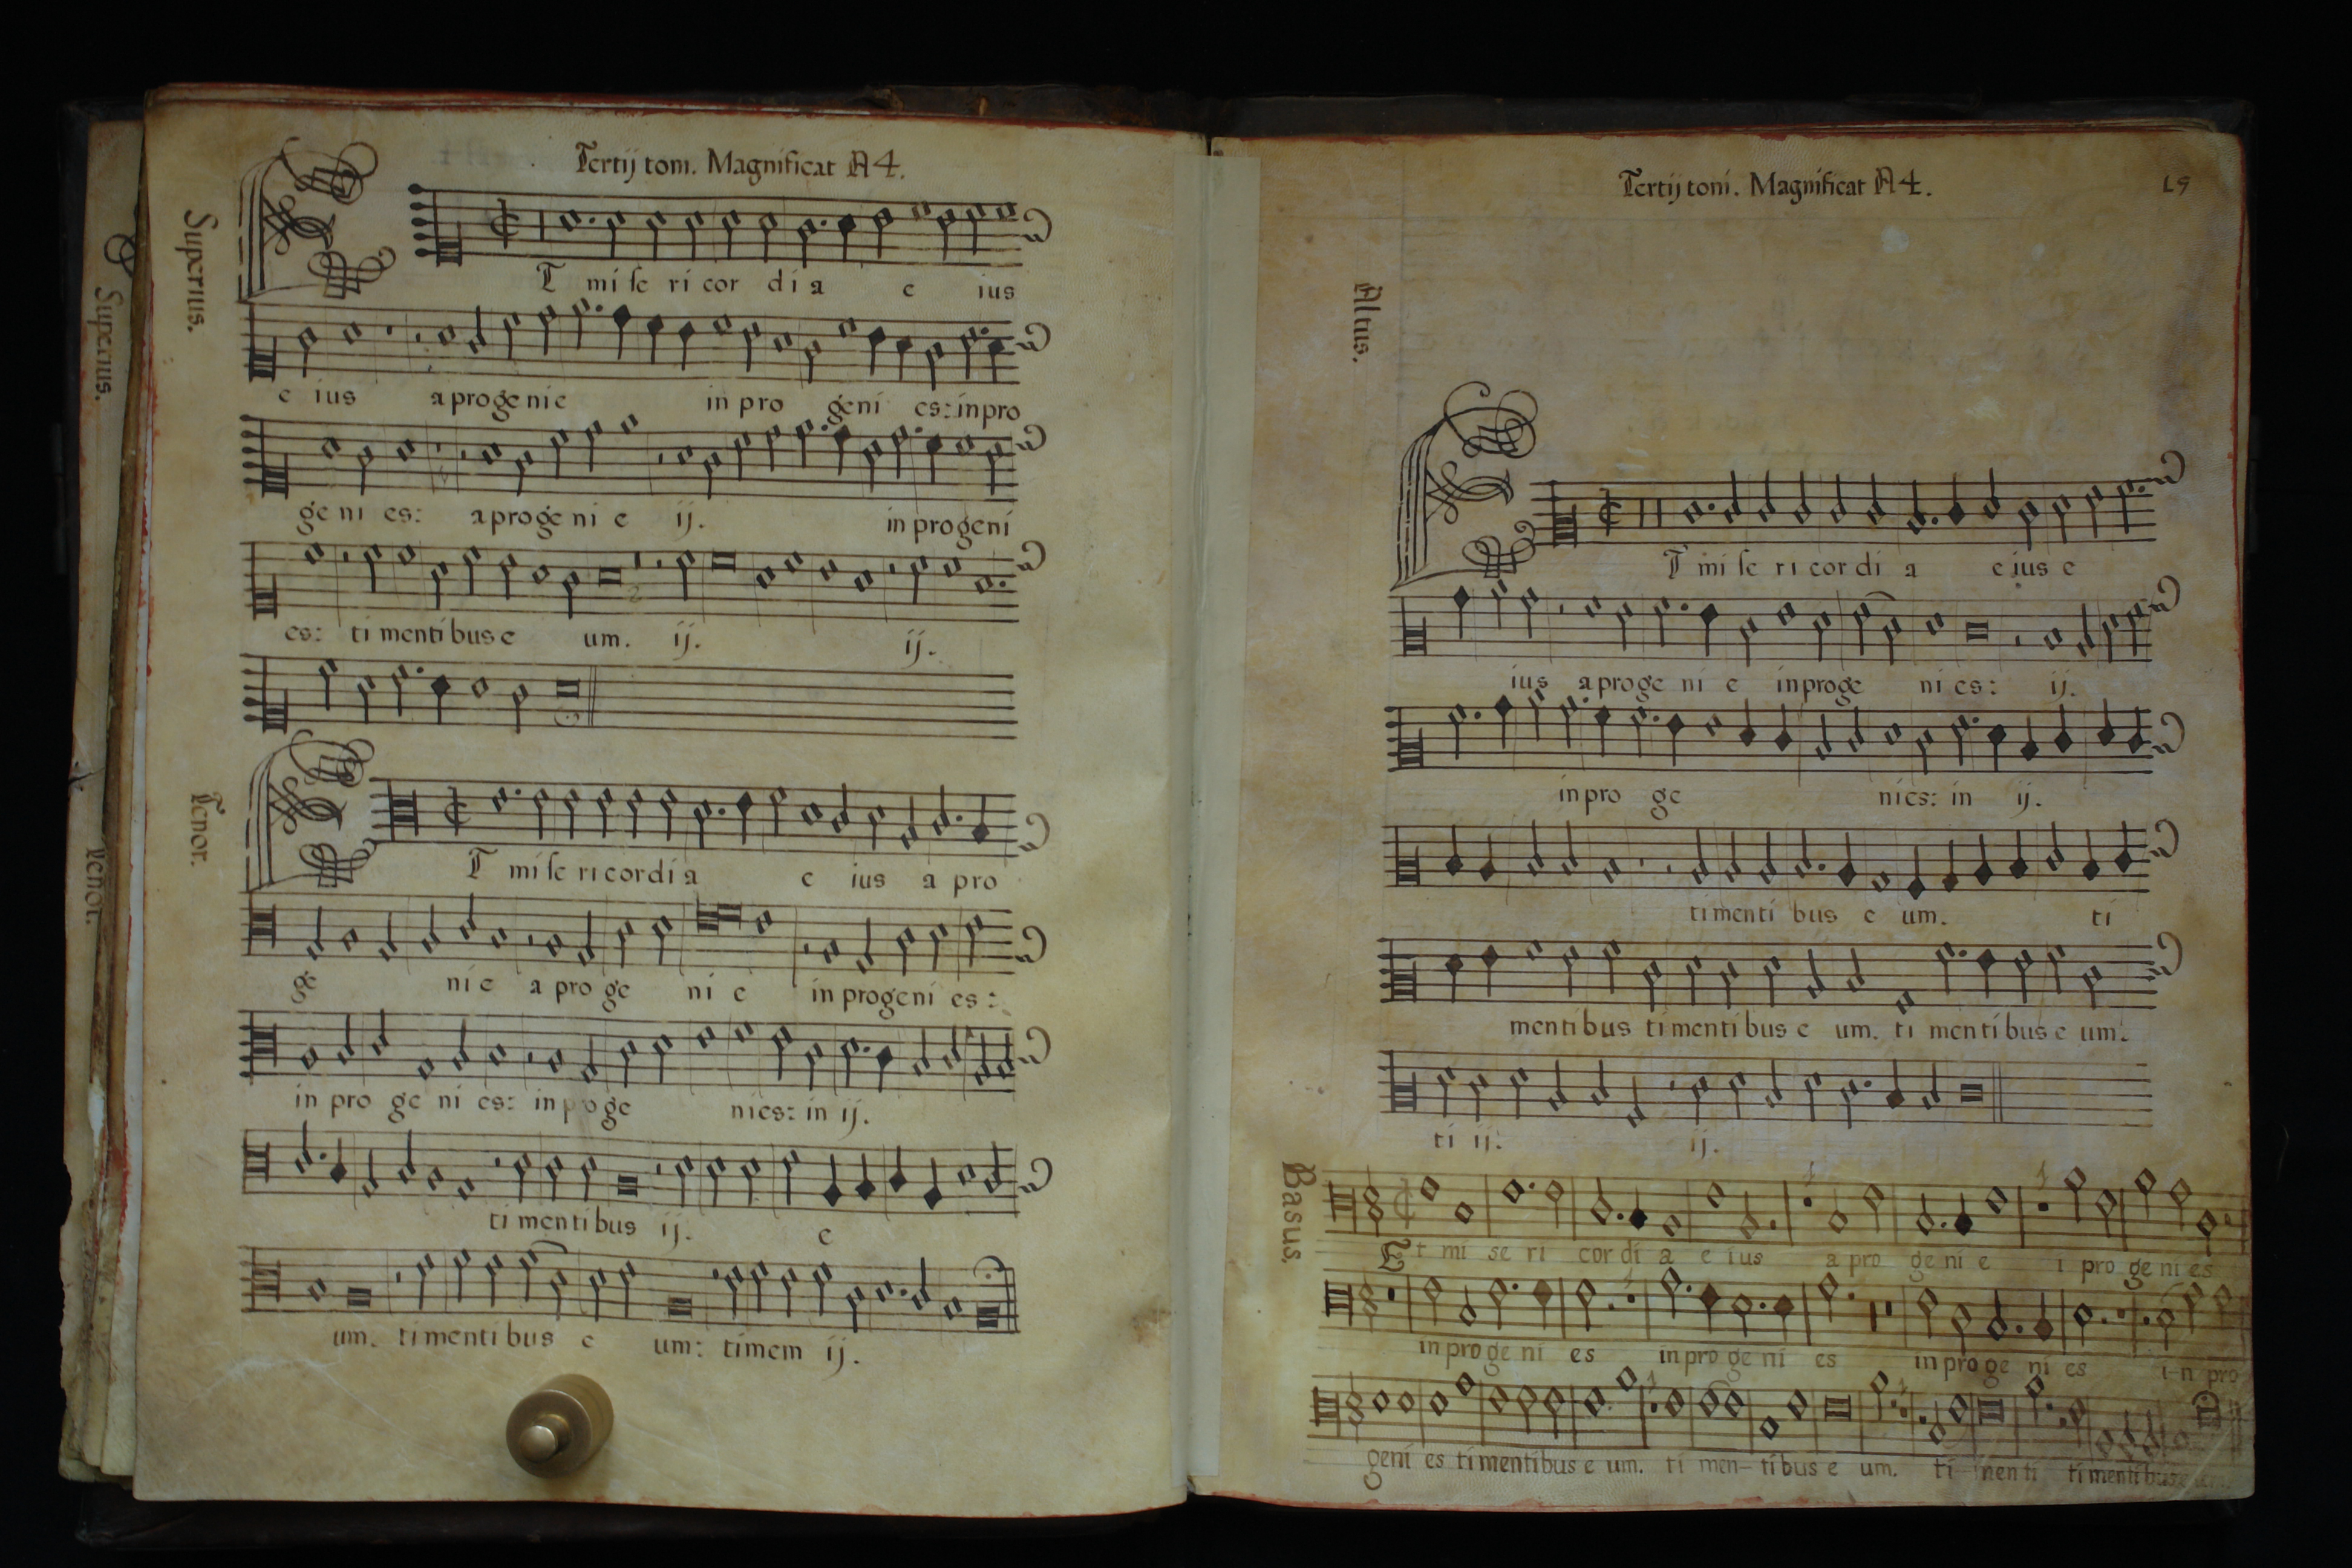 Tertij toni. Magnificat A 4.
Superius.
T mi se ri cor di a e ius
e ius a pro ge ni e in pro geni es: in pro
ge ni es: a pro ge ni e ij. in pro geni
es: ti menti bus e um. ij. ij.
Tenor.
T mi se ri cor di a e ius a pro
ge ni e a pro ge ni e in progeni es:
in pro ge ni es: in p oge nies: in ij.
ti menti bus ij. e
um. ti menti bus e um: timem ij.
Superius.
Tenor.
Tertij toni. Magnificat A 4.
Altus.
T mi se ri cor di a e ius e
ius a proge ni e in proge ni es: ij.
in pro ge nies: in ij.
ti menti bus e um. ti
menti bus ti menti bus e um. ti menti bus e um:
ti ij: ij.
Basus.
Et mi se ri cor di a e ius a pro ge ni e i pro ge ni es
in pro ge ni es in pro ge ni es in pro ge ni es i-n pro
geni es ti menti bus e um. ti men- ti bus e um. ti- menti ti menti bus e